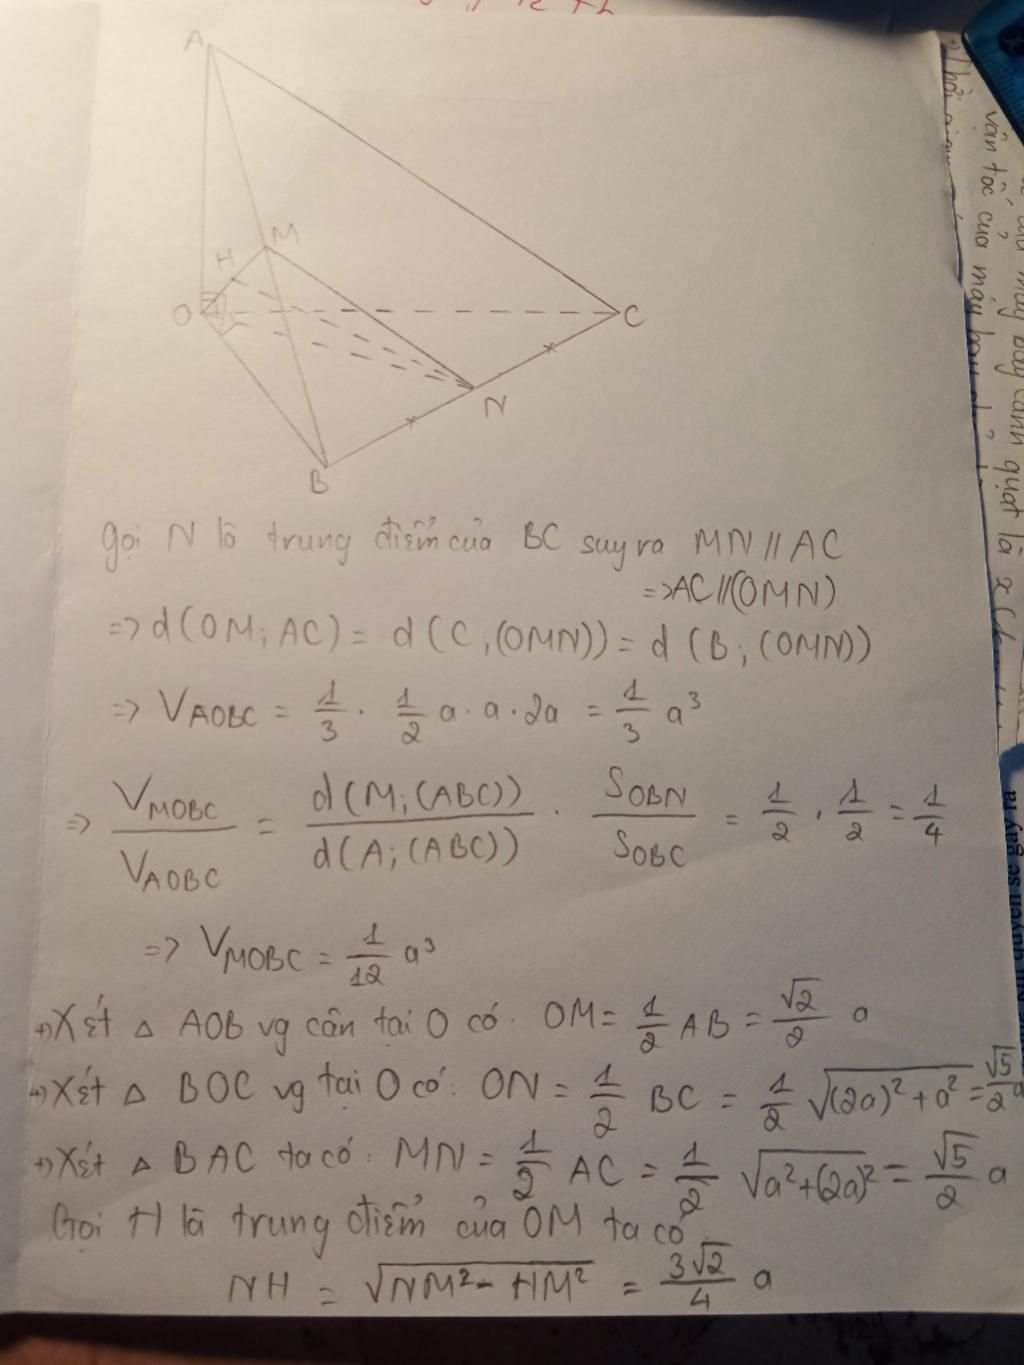 A
M
H
O
C
N
B
gọi N là trung điểm của BC suy ra MN // AC
=> AC // (OMN)
=> d(OM; AC) = d(C, (OMN)) = d(B; (OMN))
=> V_AOBC = 1/3 . 1/2 a . a . 2a = 1/3 a³
=> V_MOBC / V_AOBC = d(M; (ABC)) / d(A; (ABC)) . S_OBN / S_OBC = 1/2 . 1/2 = 1/4
=> V_MOBC = 1/12 a³
+) Xét Δ AOB vg cân tại O có: OM = 1/2 AB = √2/2 a
+) Xét Δ BOC vg tại O có: ON = 1/2 BC = 1/2 √((2a)² + a²) = √5/2 a
+) Xét Δ BAC ta có: MN = 1/2 AC = 1/2 √(a² + (2a)²) = √5/2 a
Gọi H là trung điểm của OM ta có
NH = √(NM² - HM²) = 3√2/4 a
vận tốc của máy bay
máy bay cánh quạt là x
quyển sẽ gây ra